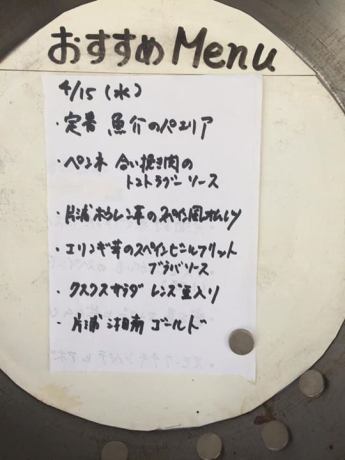 おすすめ Menu
4/15 (水)
・定番 魚介のパエリア
・ペンネ 合い挽き肉の
トマトラグーソース
・片浦ホウレン草のスペイン風オムレツ
・エリンギ茸のスペインピンチルフリット
ブラバソース
・クスクスサラダ レンズ豆入り
・片浦 湘南ゴールド